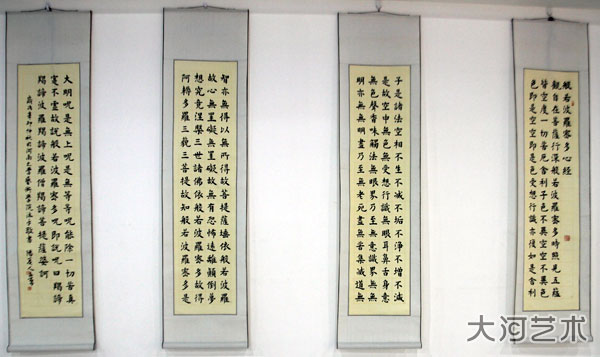 般若波羅密多心經
觀自在菩薩行深般若波羅密多時照見五蘊
皆空度一切苦厄舍利子色不異空空不異色
色即是空空即是色受想行識亦復如是舍利
子是諸法空相不生不滅不垢不淨不增不減
是故空中無色無受想行識無眼耳鼻舌身意
無色聲香味觸法無眼界乃至無意識界無無
明亦無無明盡乃至無老死盡無苦集滅道無
智亦無得以無所得故菩提薩埵依般若波羅
故心無罣礙無罣礙故無有恐怖遠離顛倒夢
想究竟涅槃三世諸佛依般若波羅密多故得
阿耨多羅三藐三菩提故知般若波羅密多是
大明呪是無上呪是無等等呪能除一切苦真
實不虛故說般若波羅密多呪即說呪曰揭諦
揭諦波羅揭諦波羅僧揭諦菩提薩婆訶
辛卯仲秋於河南大學藝術學院
大河艺术